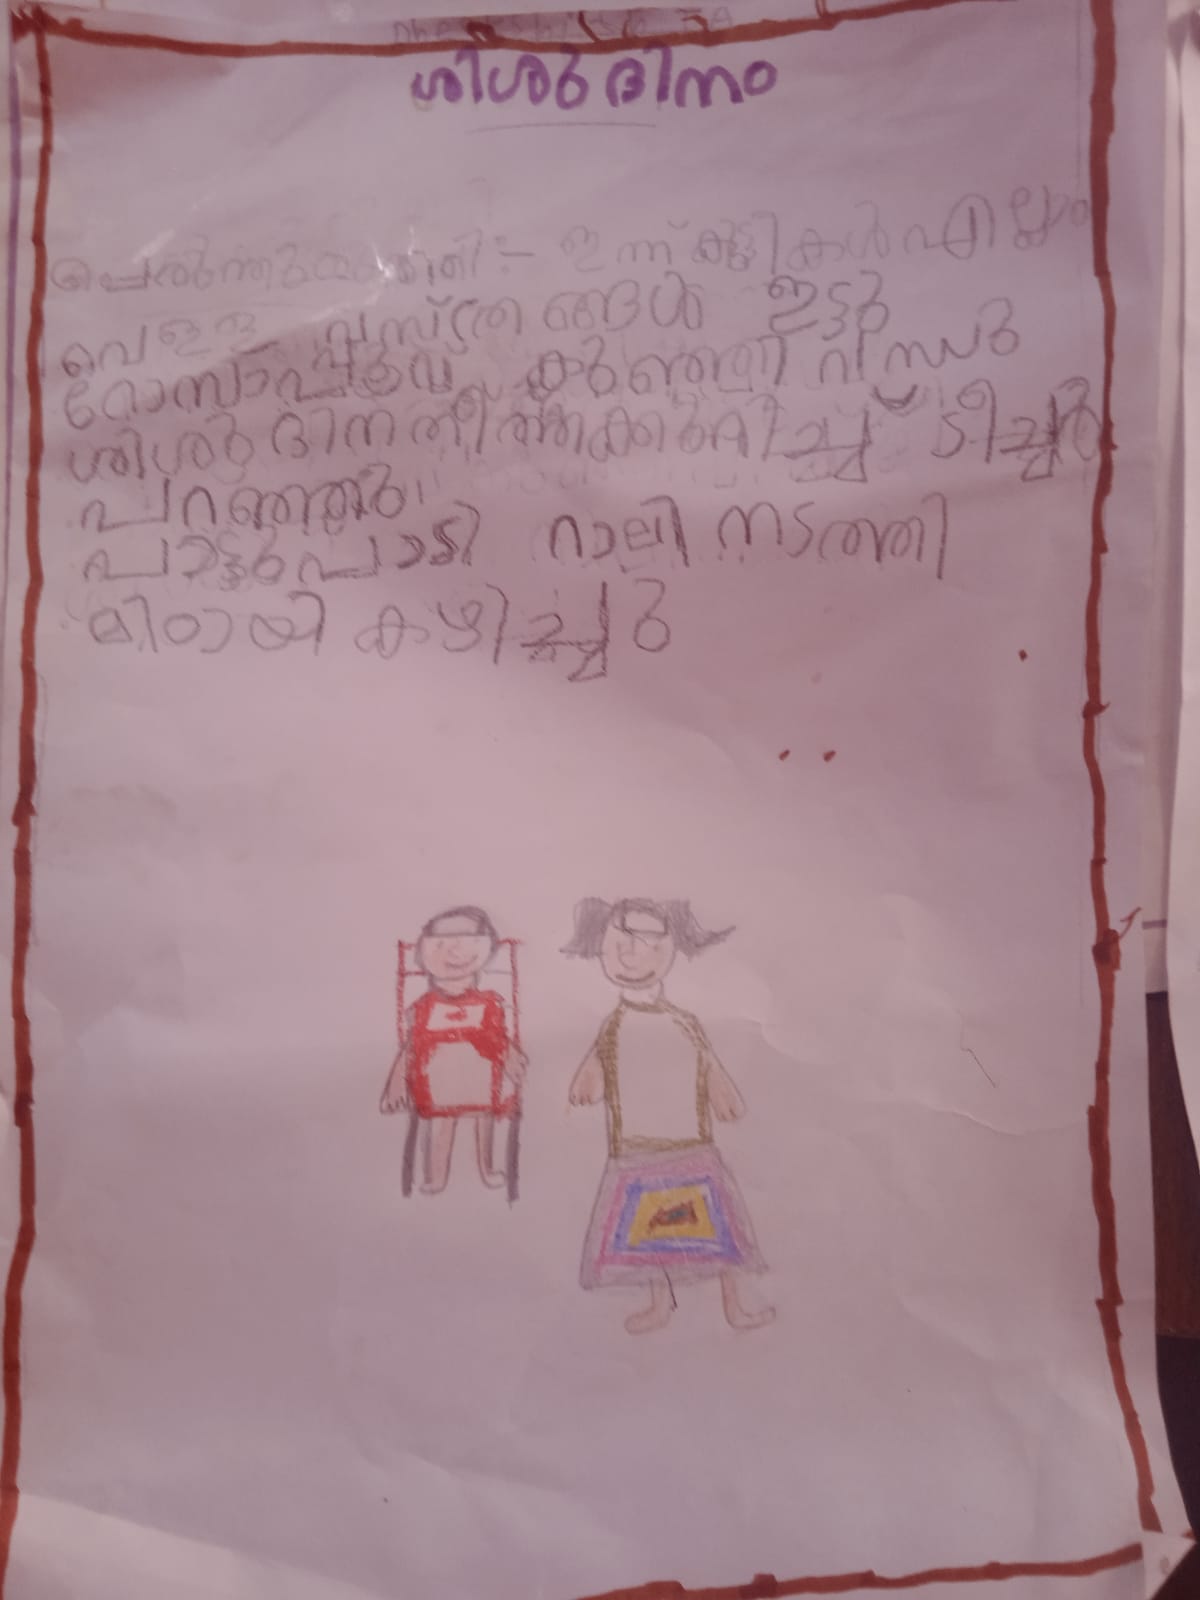 ശിശു ദിനം
ഇന്ന് കുട്ടികൾ എല്ലാം
വെള്ള വസ്ത്രങ്ങൾ ഇട്ടു
റോസാപ്പൂവ്
ശിശു ദിനത്തെക്കുറിച്ച് ടീച്ചർ
പറഞ്ഞു
പാട്ടുപാടി റാലി നടത്തി
മിഠായി കഴിച്ചു